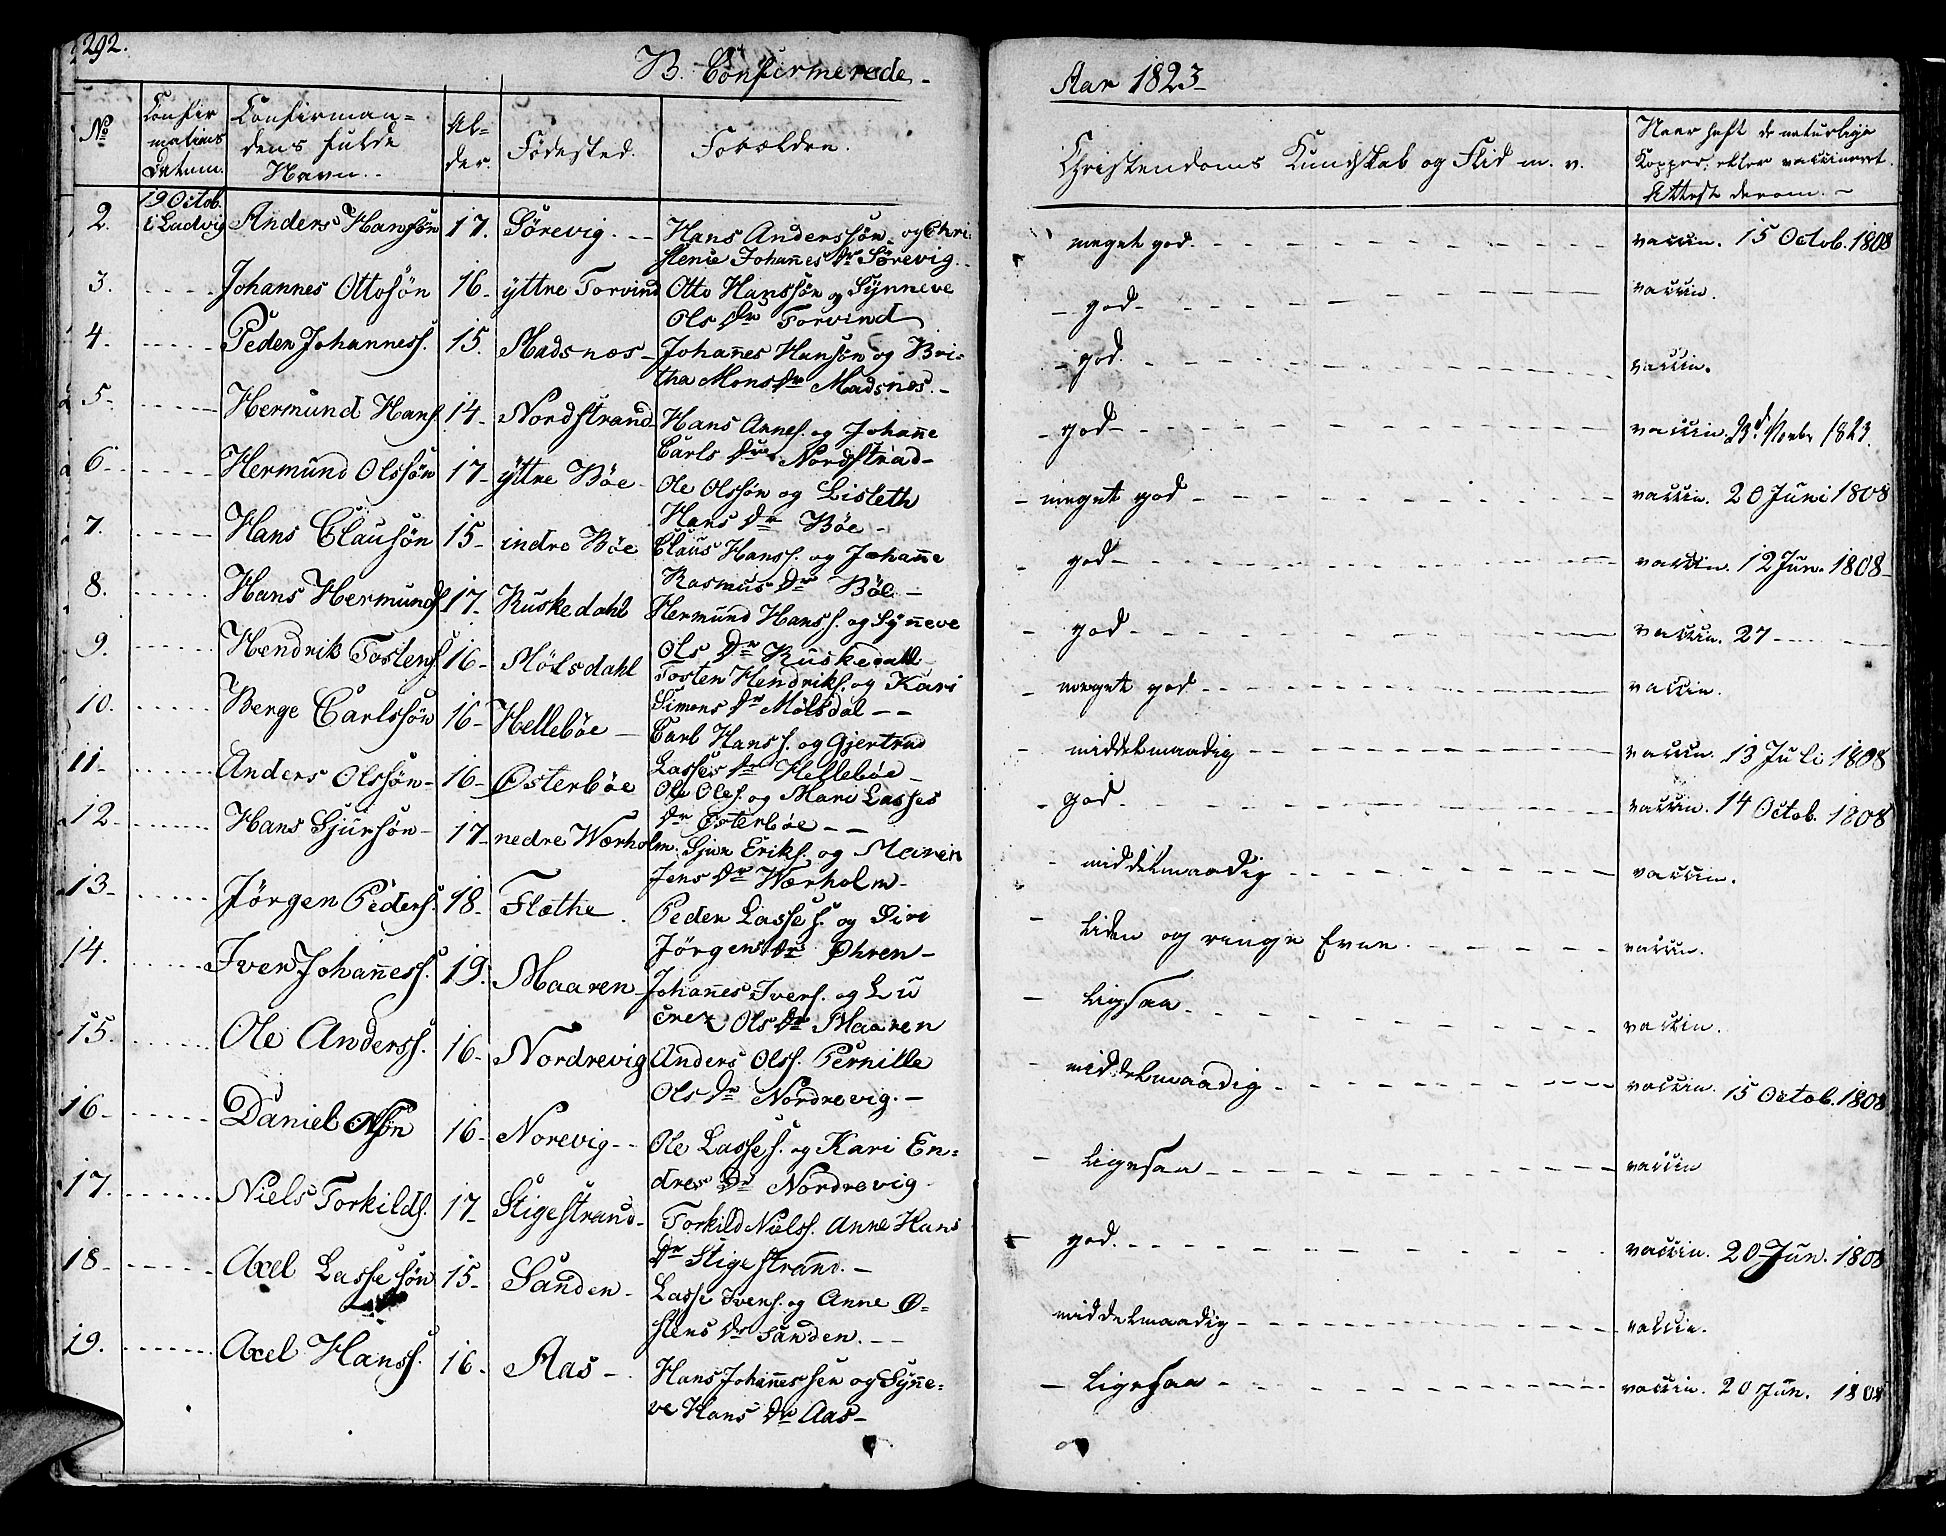 292.
B. Confirmerede
Aar 1823
No
Confirmations Datum.
Confirmandens fulde Navn.
Alder.
Födested.
Forældre.
Christendoms Kundskab og Flid m. v.
Naar haft de naturlige Kopper, eller vaccineret. Attest derom.
2. 19 Octob. i Ladvig Anders Hansøn 17. Sörevig. Hans Anderssön og Chri-
stenie Johannes Dr Sörevig. meget god. vaccin. 15 Octob. 1808
3. Johannes Ottosön 16 yttre Torvind Otto Hanssön og Synneve
Ols Dr Torvind god vaccin.
4. Peder Johanness. 15. Madsnæs Johannes Hansøn og Bri-
tha Mons Dr Madsnæs. god. vaccin.
5. Hermund Hans. 14 Nordstrand Hans Annes. og Johanne
Carls Dr Nordstrad god vaccin 1823.
6 Hermund Olssön 17 yttre Böe Ole Olssön og Lisbeth
Hans Dr Böe meget god vaccin. 20 Juni 1808
7. Hans Clausön 15 indre Böe Claus Hanss. og Johanne
Rasmus Dr Böe god vaccin. 12 Jun. 1808
8. Hans Hermunds 17 Ruskedahl Hermund Hanss. og Synneve
Ols Dr Ruskedall god vaccin. 27
9. Hendrik Tostens. 16 Mölsdahl Tosten Hendriks. og Kari
Simons Dr Mölsdal meget god vaccin.
10. Berge Carlssön 16 Helleböe Carl Hanss. og Gjertrud
Lasses Dr Helleböe middelmaadig vaccin. 13 Juli 1808
11 Anders Olssön 16 Østerböe Ole Oles. og Mari Lasses
Dr Österböe god vaccin. 14 Octob. 1808
12 Hans Sjursön 17 nedre Wærholm. Sjur Eriks. og Maren
Jens Dr Wærholm middelmaadig vaccin.
13 Jörgen Peders. 18. Flæthe Peder Lasses. og Siri
Jörgens Dr Øhren liden og ringe Evne. vaccin.
14. Iver Johanness. 19. Maaren Johannes Ivers. og Lu
cret Ols Dr Maaren ligesaa vaccin.
15. Ole Anderss. 16 Nordrevig Anders Olss. Pernille
Ols Dr Nordrevig. middelmaadig vaccin. 15 Octob. 1808
16 Daniel Olsøn 16 Norevig Ole Lasses. og Kari En-
dres Dr Nordrevig ligesaa vaccin
17. Niels Torkilds. 17 Stigestrand Torkild Niels. Anne Hans
Dr Stigestrand. god. vaccin. 20 Jun. 1808
18 Axel Lassesön 15 Sanden Lasse Ivers. og Anne Ø-
stens Dr Sanden. middelmaadig vaccin.
19. Axel Hanss. 16 Aas Hans Johannessen og Synne-
ve Hans Dr Aas ligesaa vaccin. 20 Jun. 1808